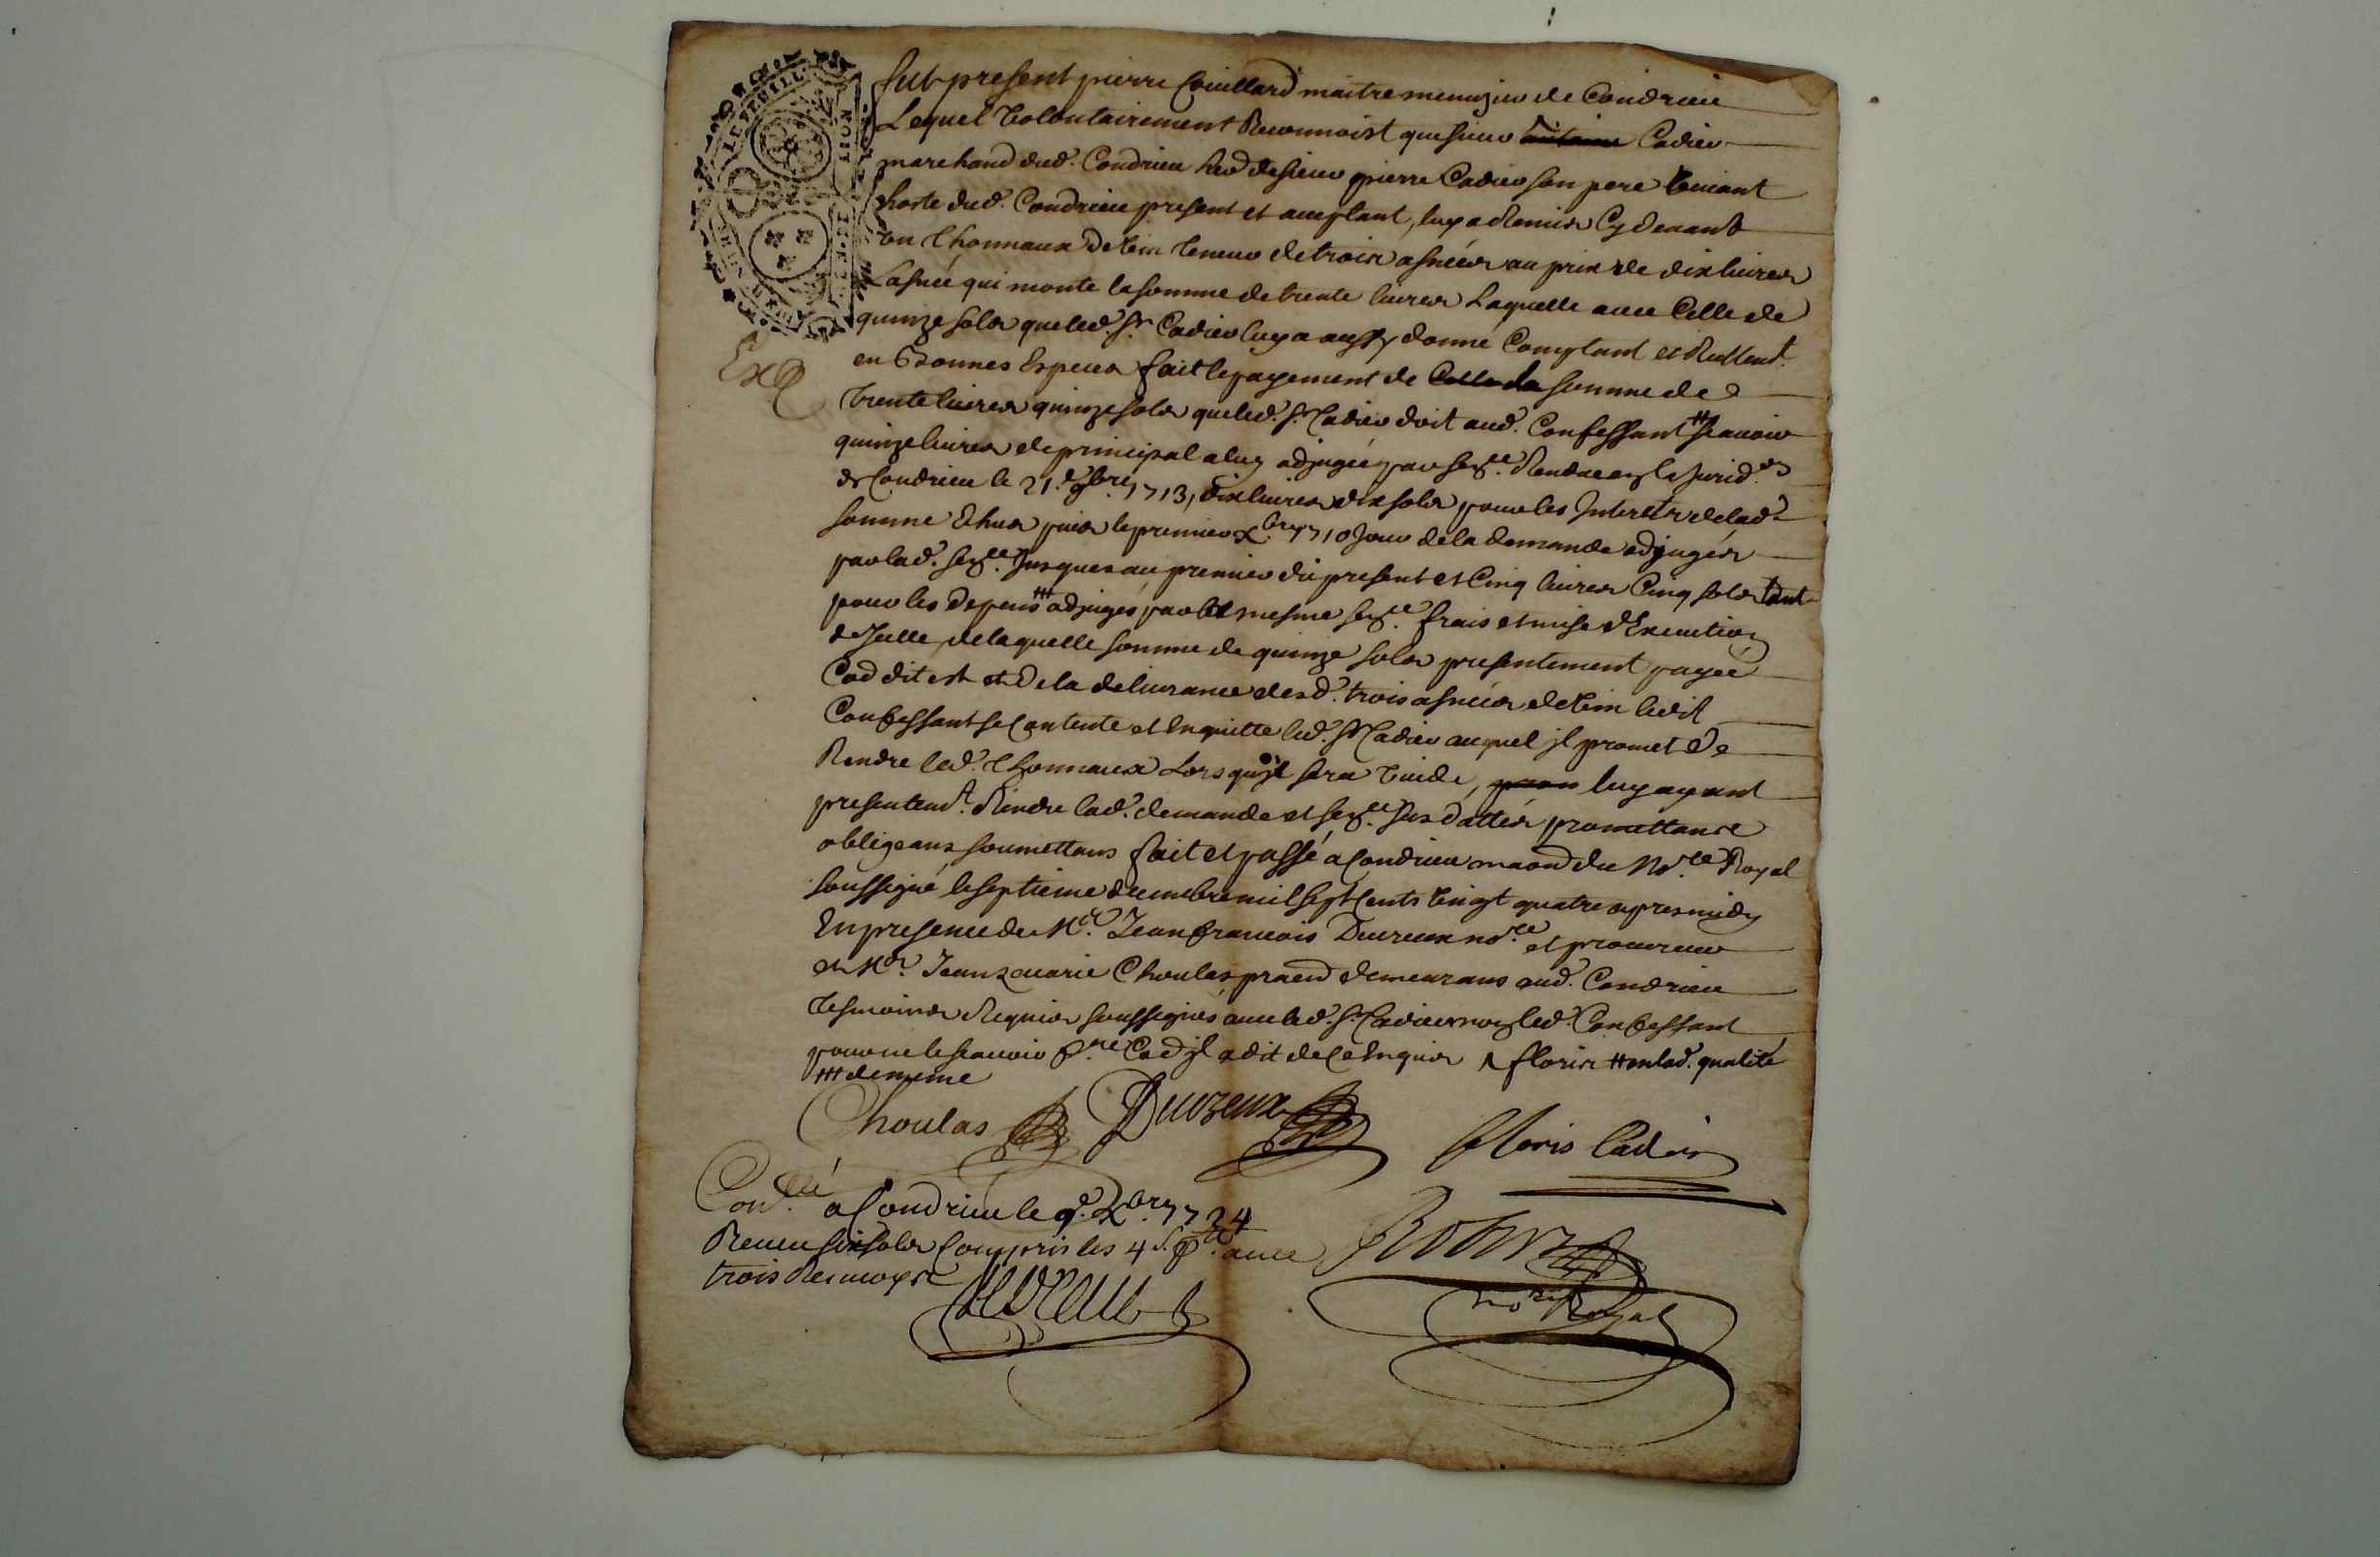 fut present pierre Couillard maitre menuzier de Condrieu
Lequel volontairement Reconnoist que sieur Cadier
marchand dud. Condrieu her.d de sieur pierre Cadier son pere vivant
hoste dud. Condrieu present et acceptant, luy a Remis Cy devant
un thonnaux de vin teneur de trois asnées au prix de dix livres
Lasnée qui monte la somme de trente livres Laquelle avec Celle de
quinze sols que led. Sr. Cadier luy a aussy donné Comptant et Reellent.
en Bonnes Especes fait le payement de la somme de
trente livres quinze sols que led. Sr. Cadier doit aud. Confessant ++ scavoir
quinze livres de principal a luy adjugées par sence. Rendue en la Jurid.on
de Condrieu le 21.e 9bre. 1713, dix livres dix sols pour les Interets de lad.
somme Echus puis le premier Xbre 1710 Jour de la demande adjugés
par lad. sence. Jusques au premier du present et Cinq livres Cinq sols tant
pour les depens +++ adjugés par la mesme sence. frais et mise d'Execution
d'Icelle, de laquelle somme de quinze sols presentement payée
Co.e dit est et de la delivrance desd. trois asnées de vin ledit
Confessant se Contente et Enquitte led. Sr Cadier auquel jl promet de
Rendre led. thonnaux Lors qu'jl sera vuide, luy ayant
presentem.t Rendre lad. demande et sence. sus dattées promettans
obligeans soumettans fait et passé a Condrieu maison du No.re Royal
soussigné le septieme decembre mil sept Cents vingt quatre apres midy
En presence de Me. Jean francois Ducreux no.re et procureur
et Me. Jean zacarie Choulas praen demeurans aud. Condrieu
tesmoins Requis soussignés avec led. Sr. Cadier non led. Confessant
pour ne le scavoir Co.e jl a dit de ce Enquis floris ++ en lad. qualité
+++ de meme
Exp
Choulas Ducreux
floris Cadier
Con.llé a Condrieu le 9.e Xbre 1724
Receu six sols Compris les 4 s. p. avec
trois Renvoys
no.re Royal